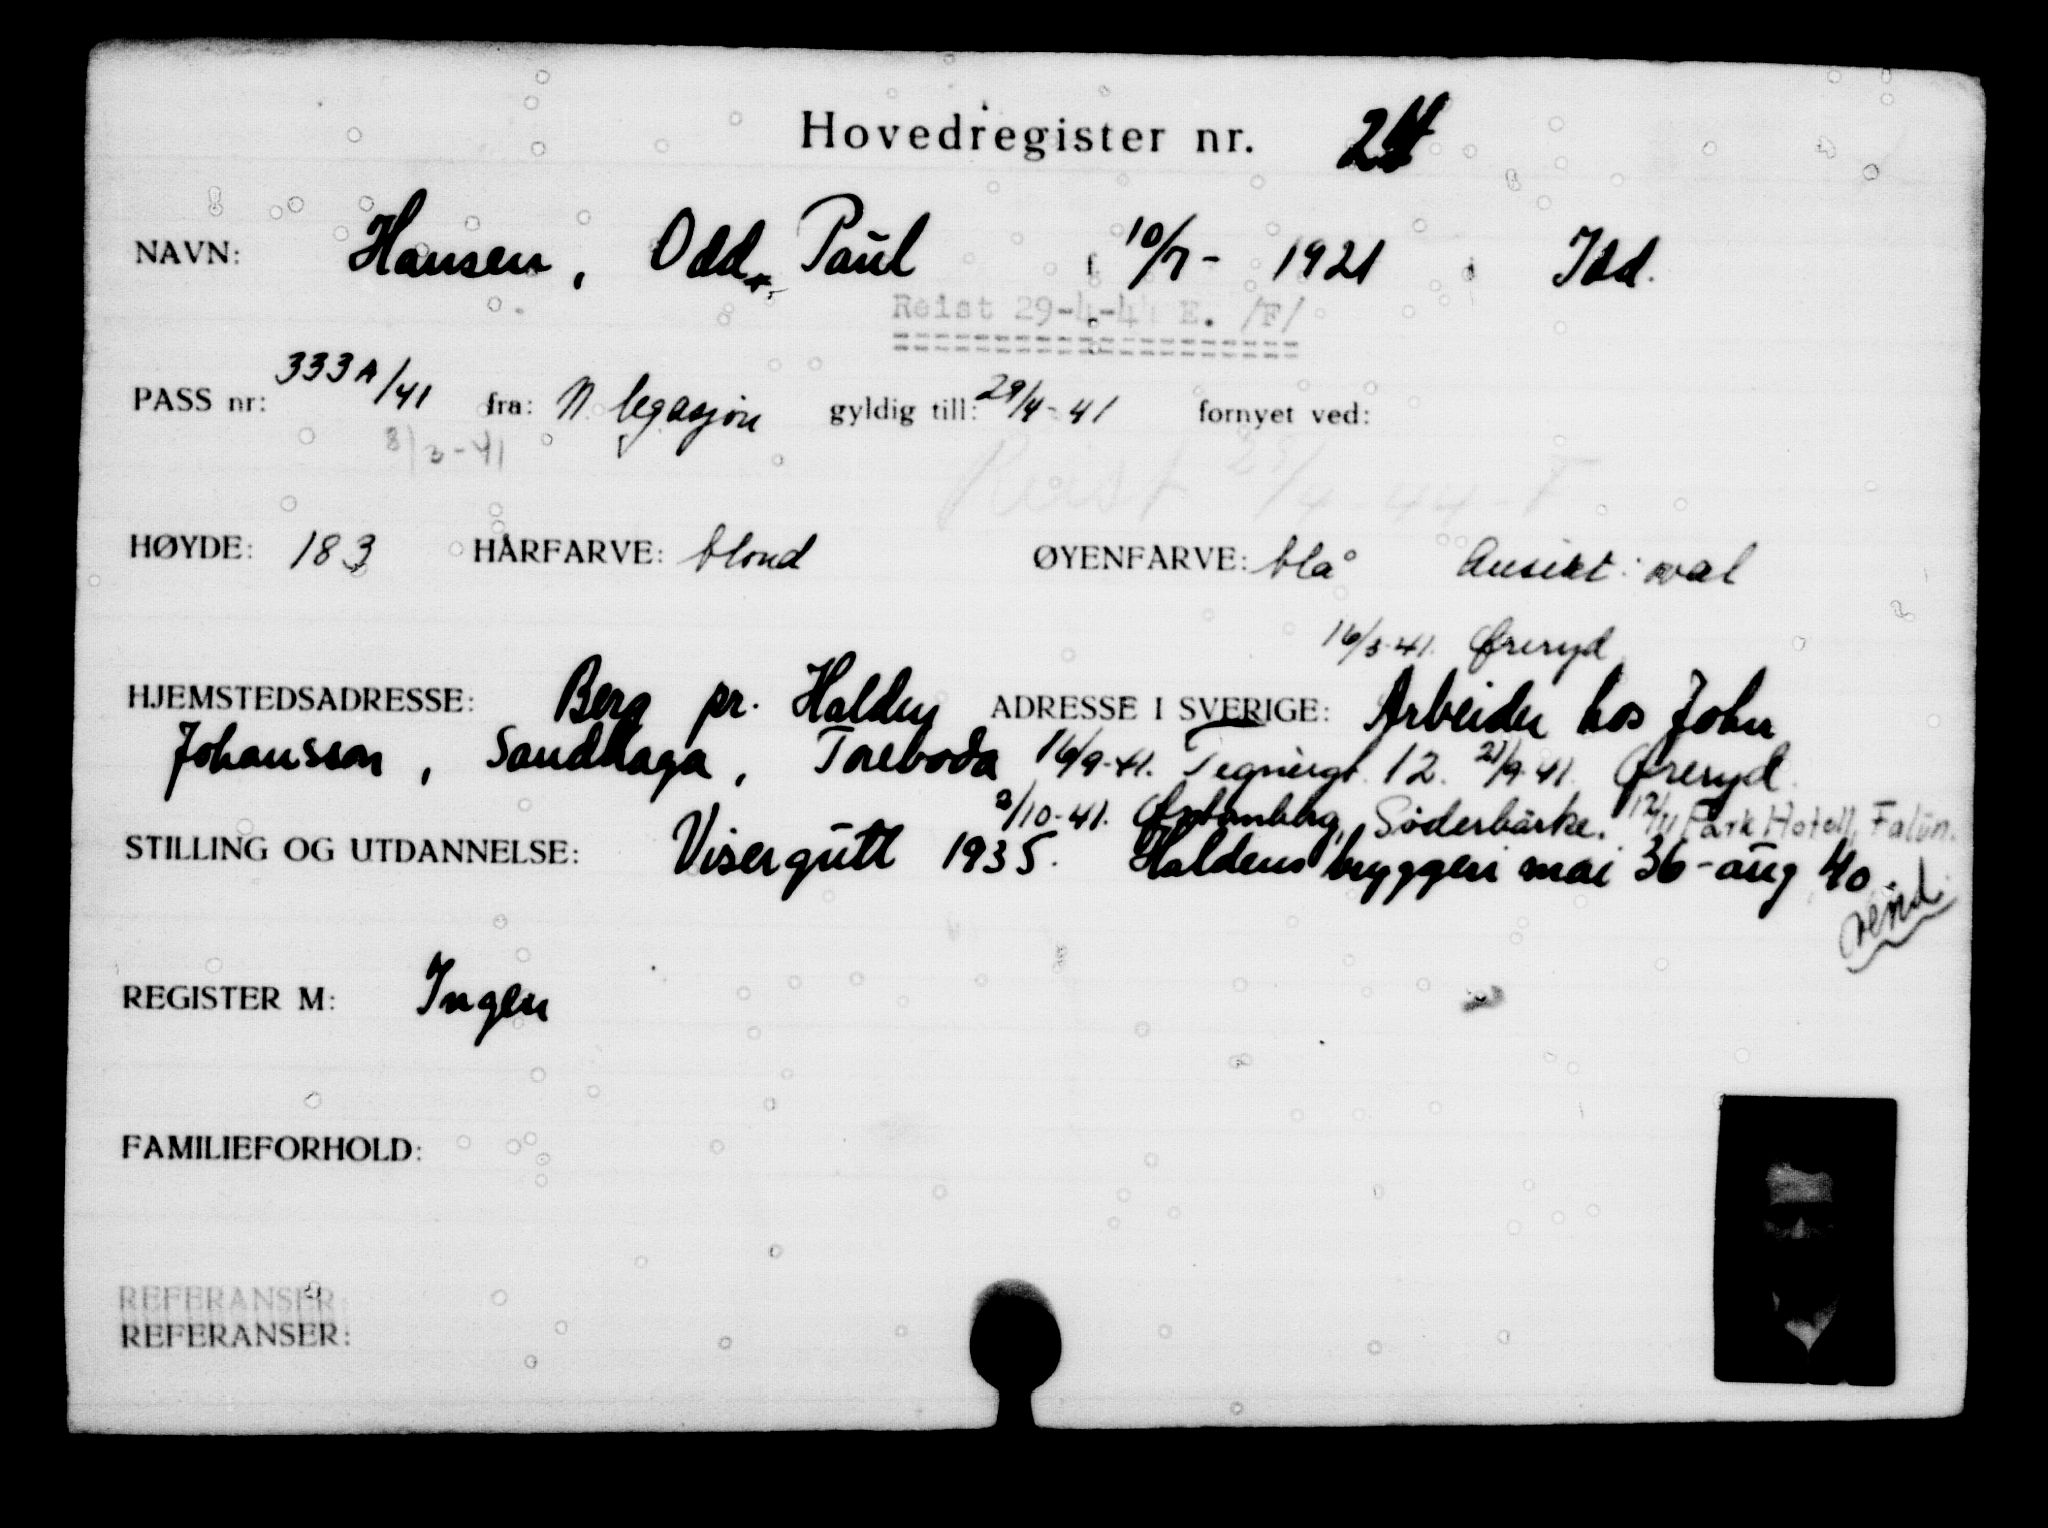 Hovedregister nr.
NAVN: Hansen, Odd Paul f 10/7- 1921 i Idd.
Reist 29-4-4 E. /F/
PASS nr: 333A/41 fra: N. legasjon gyldig till: 29/4-41 fornyet ved:
8/3-41
Reist 25/4-44-F
HØYDE: 183 HÅRFARVE: blond ØYENFARVE: blå Ansikt: oval
16/3-41. Øreryd
HJEMSTEDSADRESSE: Berg pr. Halden ADRESSE I SVERIGE: Arbeider hos John
Johansson, Sandhaga, Toreboda 16/9-41. Tegnergt. 12. 21/9-41 Øreryd.
2/10-41. Söderbärke. 12/11 Park Hotell, Falun.
STILLING OG UTDANNELSE: Visergutt 1935. Haldens bryggeri mai 36-aug 40.
vend.
REGISTER M: Ingen
FAMILIEFORHOLD:
REFERANSER:
REFERANSER: